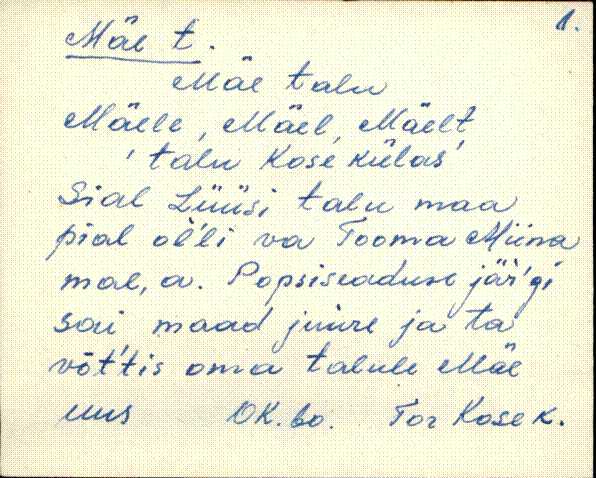 1.
Mäe t.
Mäe talu
Mäele, Mäel, Mäelt
'talu Kose külas'
Sial Lüüsi talu maa
pial ol'li va Tooma Miina
mae, a. Popsiseaduse jär'gi
sai maad juure ja ta
võt'tis oma talule Mäe
uus OK.60. Tor Kose k.